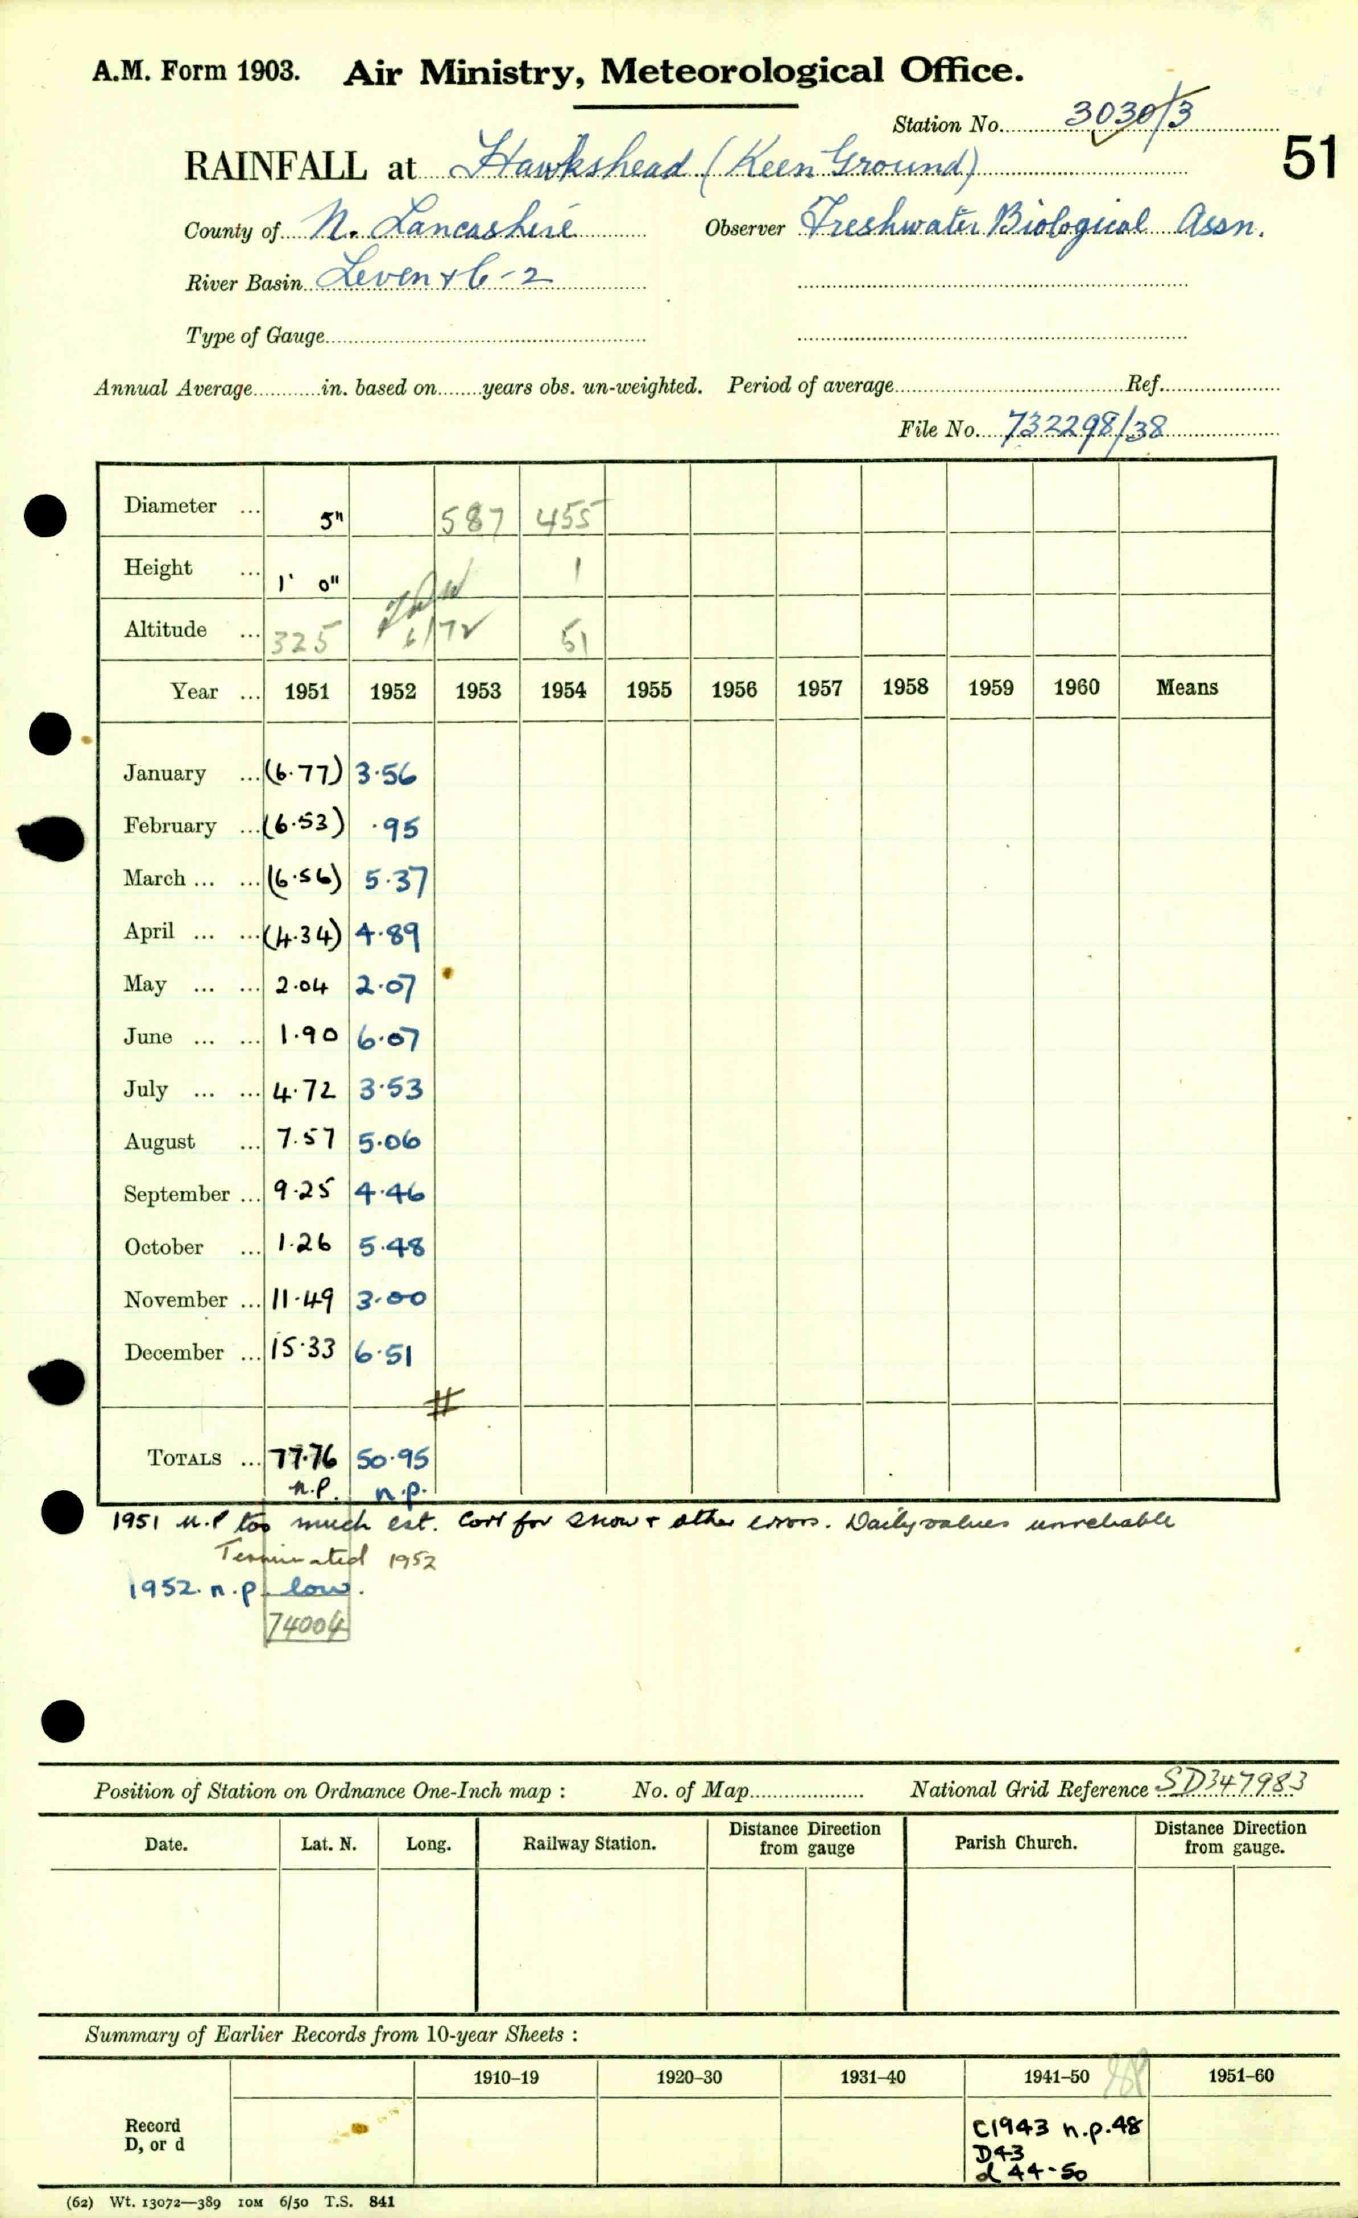 A.M. Form 1903. Air Ministry, Meteorological Office.
Station No. 3030/3
51
RAINFALL at Hawkshead (Keen Ground)
County of N. Lancashire Observer Freshwater Biological Assn.
River Basin Leven & C-2
Type of Gauge
Annual Average in. based on years obs. un-weighted. Period of average Ref.
File No. 732298/38
Diameter ... 5" 587 455
Height ... 1' 0" 1
Altitude ... 325 6/72 51
Year ... 1951 1952 1953 1954 1955 1956 1957 1958 1959 1960 Means
January ... (6.77) 3.56
February ... (6.53) .95
March ... ... (6.56) 5.37
April ... ... (4.34) 4.89
May ... ... 2.04 2.07
June ... ... 1.90 6.07
July ... ... 4.72 3.53
August ... 7.57 5.06
September ... 9.25 4.46
October ... 1.26 5.48
November ... 11.49 3.00
December ... 15.33 6.51
#
TOTALS ... 77.76 50.95
n.p. n.p.
1951 n.p too much est. Corr for snow & other errors. Daily values unreliable
Terminated 1952
1952. n.p. low.
74004
Position of Station on Ordnance One-Inch map : No. of Map National Grid Reference SD347983
Date. Lat. N. Long. Railway Station. Distance from Direction gauge Parish Church. Distance from Direction gauge.
Summary of Earlier Records from 10-year Sheets :
1910–19 1920–30 1931–40 1941–50 1951–60
Record
D, or d
C1943 n.p.48
D43
d 44-50
(62) Wt. 13072—389 10M 6/50 T.S. 841